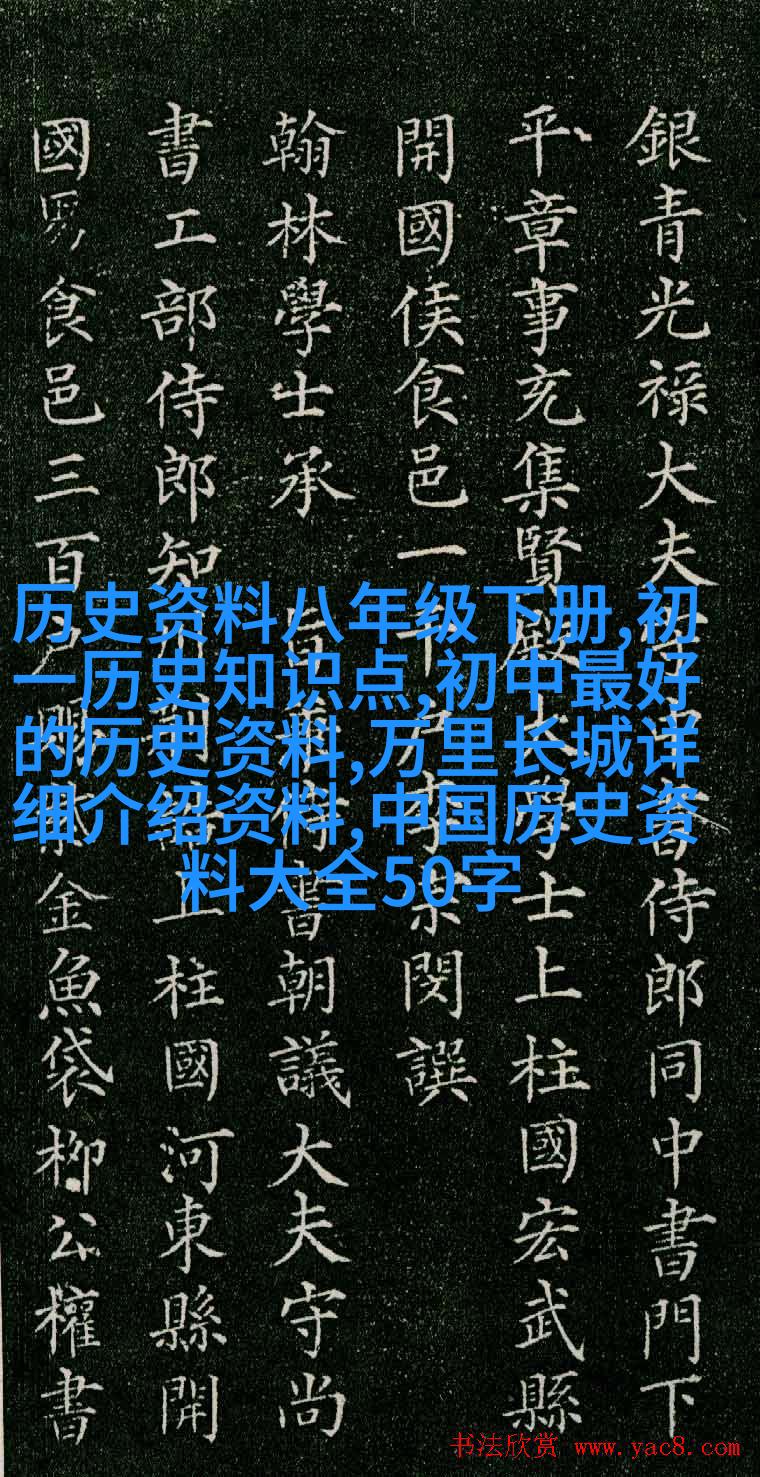 銀青光禄大夫守中書侍郎同中書門下
平章事充集賢殿大學士上柱國宏武縣
開國侯食邑一千户李宗閔譔
翰林學士承 旨兼侍書朝議大夫守尚
書工部侍郎知制誥上柱國河東縣開
國男食邑三百户賜紫金魚袋柳公權書
历史资料八年级下册,初
一历史知识点,初中最好
的历史资料,万里长城详
细介绍资料,中国历史资
料大全50字
书法欣赏 www.yac8.com